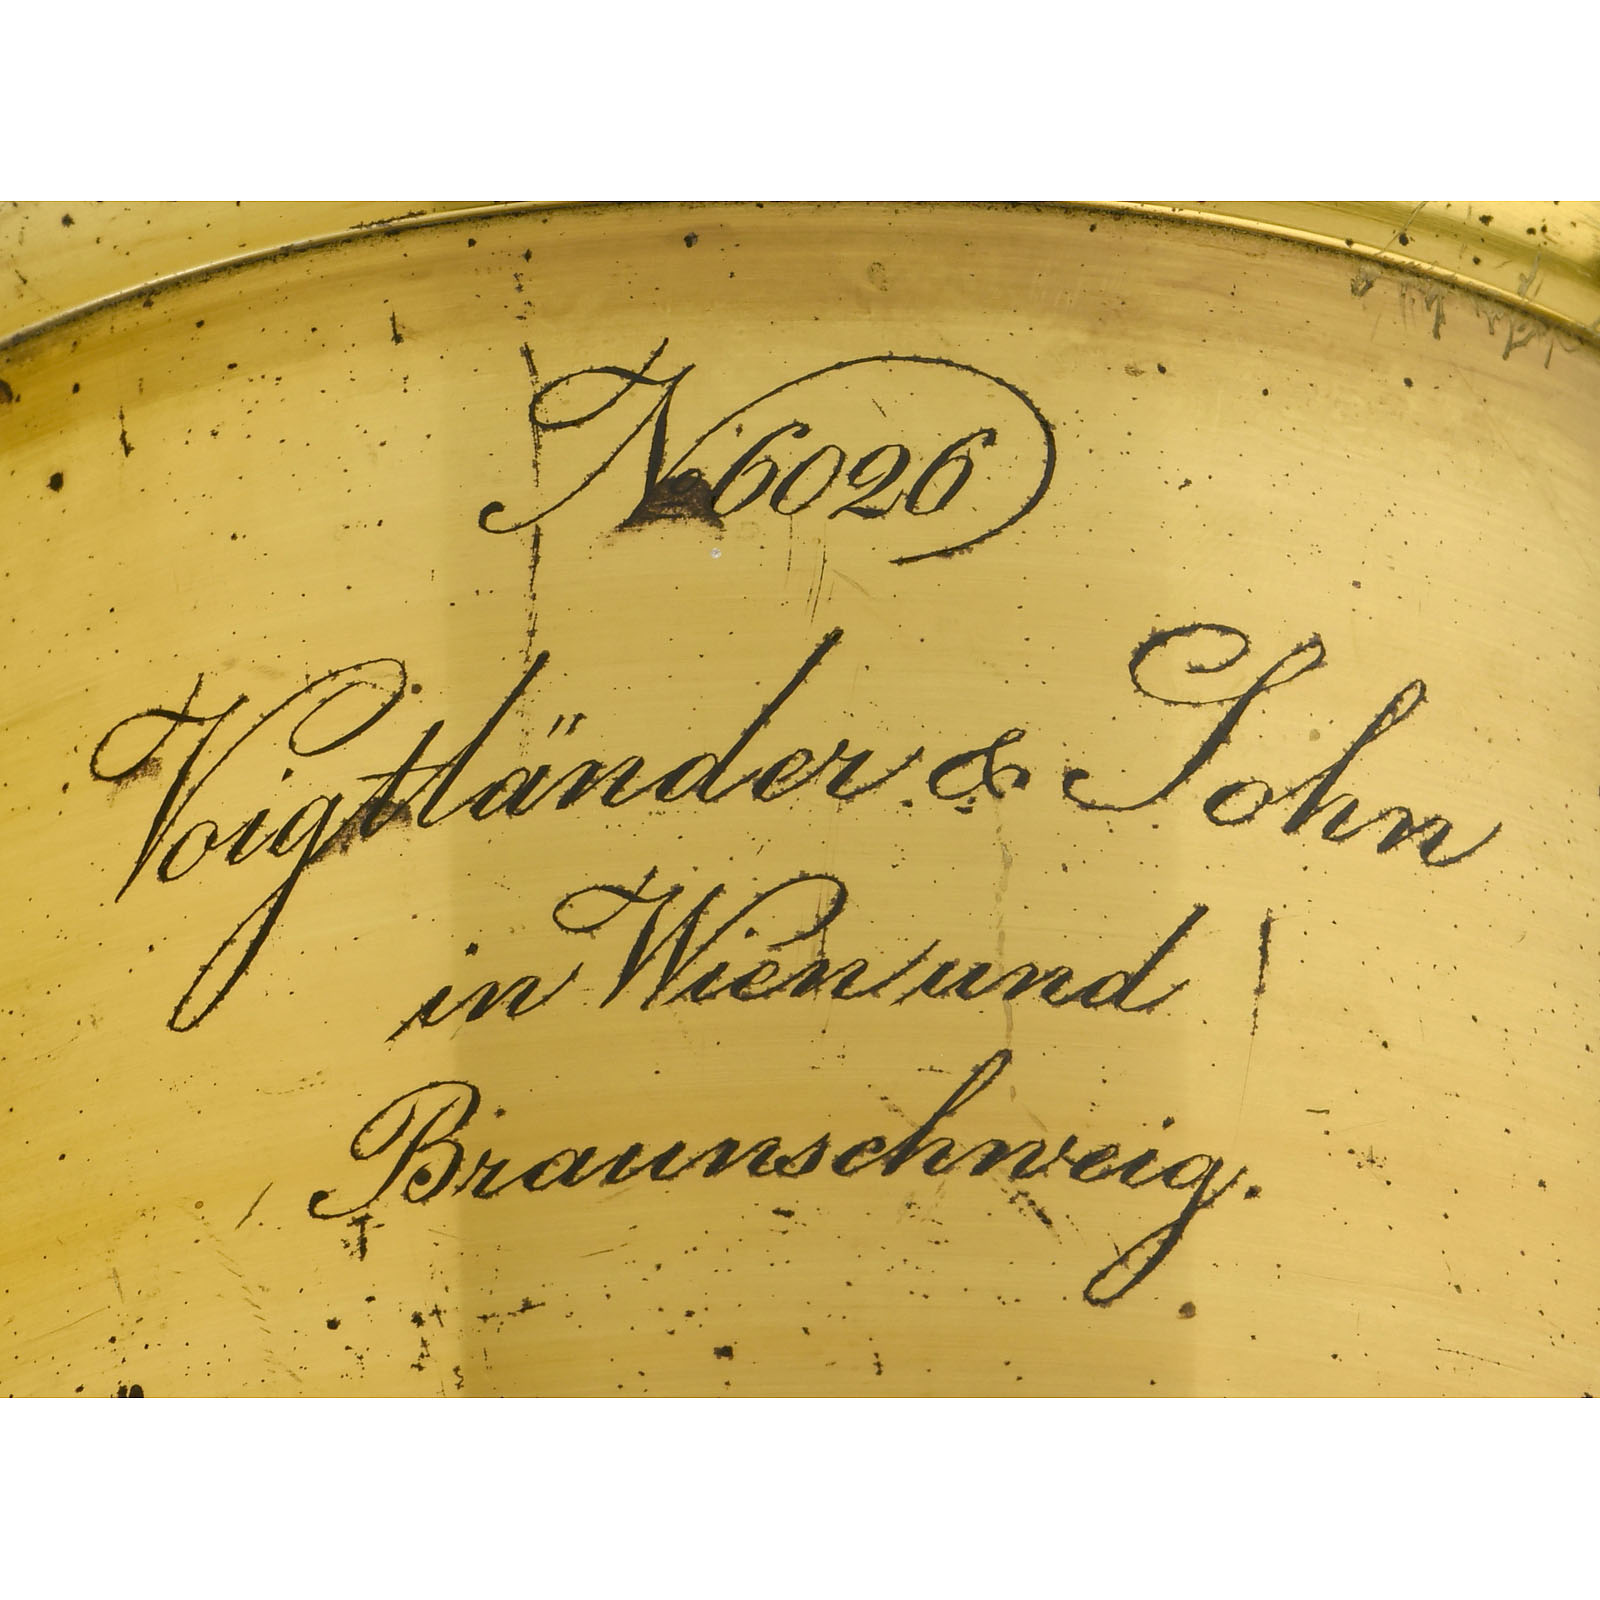 No 6026
Voigtländer & Sohn
in Wien und
Braunschweig.